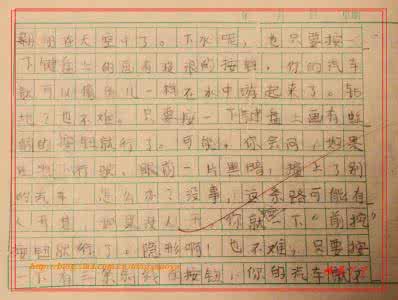 翔在天空中了。下水呢，也只要按一
下键盘上的画有波浪的按钮，你的汽车
就可以像鱼儿一样在水中游起来了。钻
地？也不难。只要按一下键盘上画有
的按钮就行了。可能，你会问，如果
在地下行驶，眼前一片黑暗，撞上了别
的汽车，怎么办？没事，这条路可能有
人开走，如果没人开，你就按一下“前挖”
按钮就行了。隐形啊！也不难，只要按
一下有三条曲线的按钮，你的汽车就不